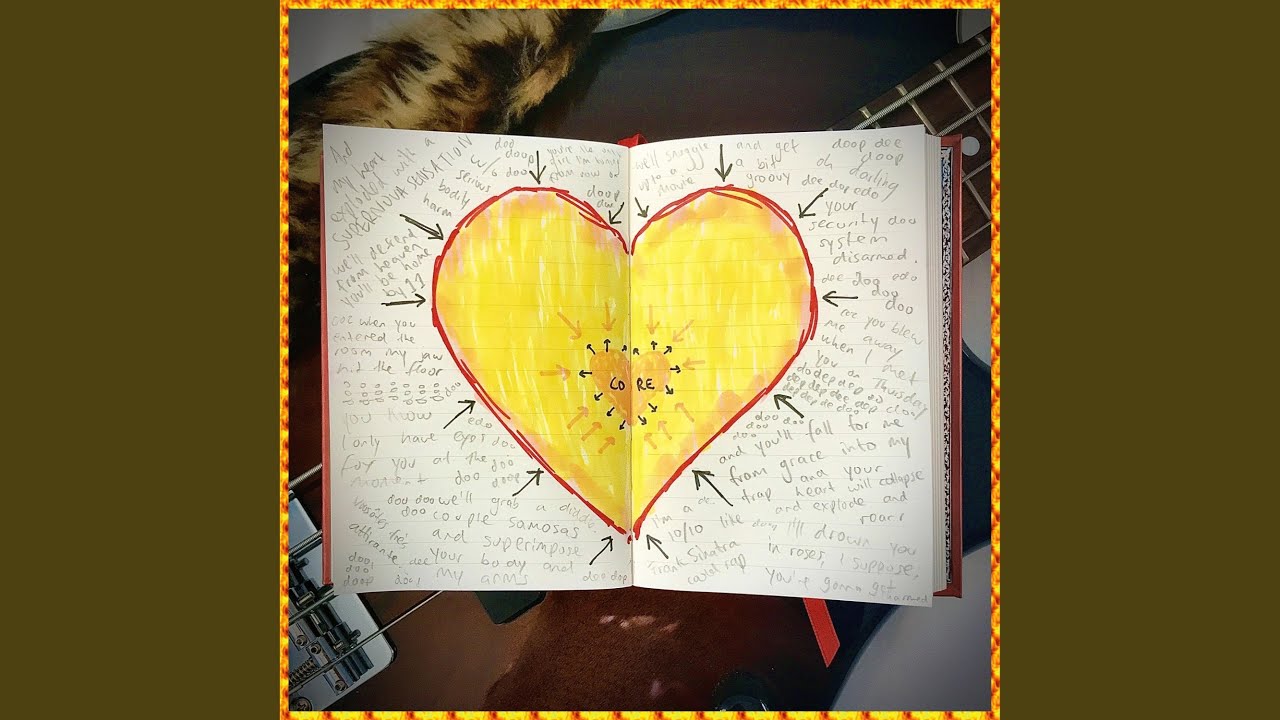 And
my heart
exploded with a
SUPERNOVA SENSATION
w/o
serious
bodily
harm
doo
doop
doo
you're the only
girl I'm
from now on
doop
doo
we'll defend
from heaven
you'll be home
by 11
coz when you
entered the
room my jaw
hit the floor
doo
you know
I only have eyes
for you at the
moment
edo
doo
doo
doo
doo doop
doo doo we'll grab a
doo couple samosas
and superimpose
your body and
my arms
dee
doo,
doo
doop doo,
doo dop
we'll snuggle
up to a
movie
and get
a bit
groovy
doop dee
doop
oh darling
dee dop edo
your
security doo
system
disarmed.
dee doo edo
doo
doo
coz you blew
me away
when I met
you on Thursday
doo doo
doo
doo
and you'll fall for me
from grace into my
trap
and your
heart will collapse
and explode and
roar
I'm a
10/10 like
Frank Sinatra
could rap
I'll drown you
in roses, I suppose,
you're gonna get
CORE